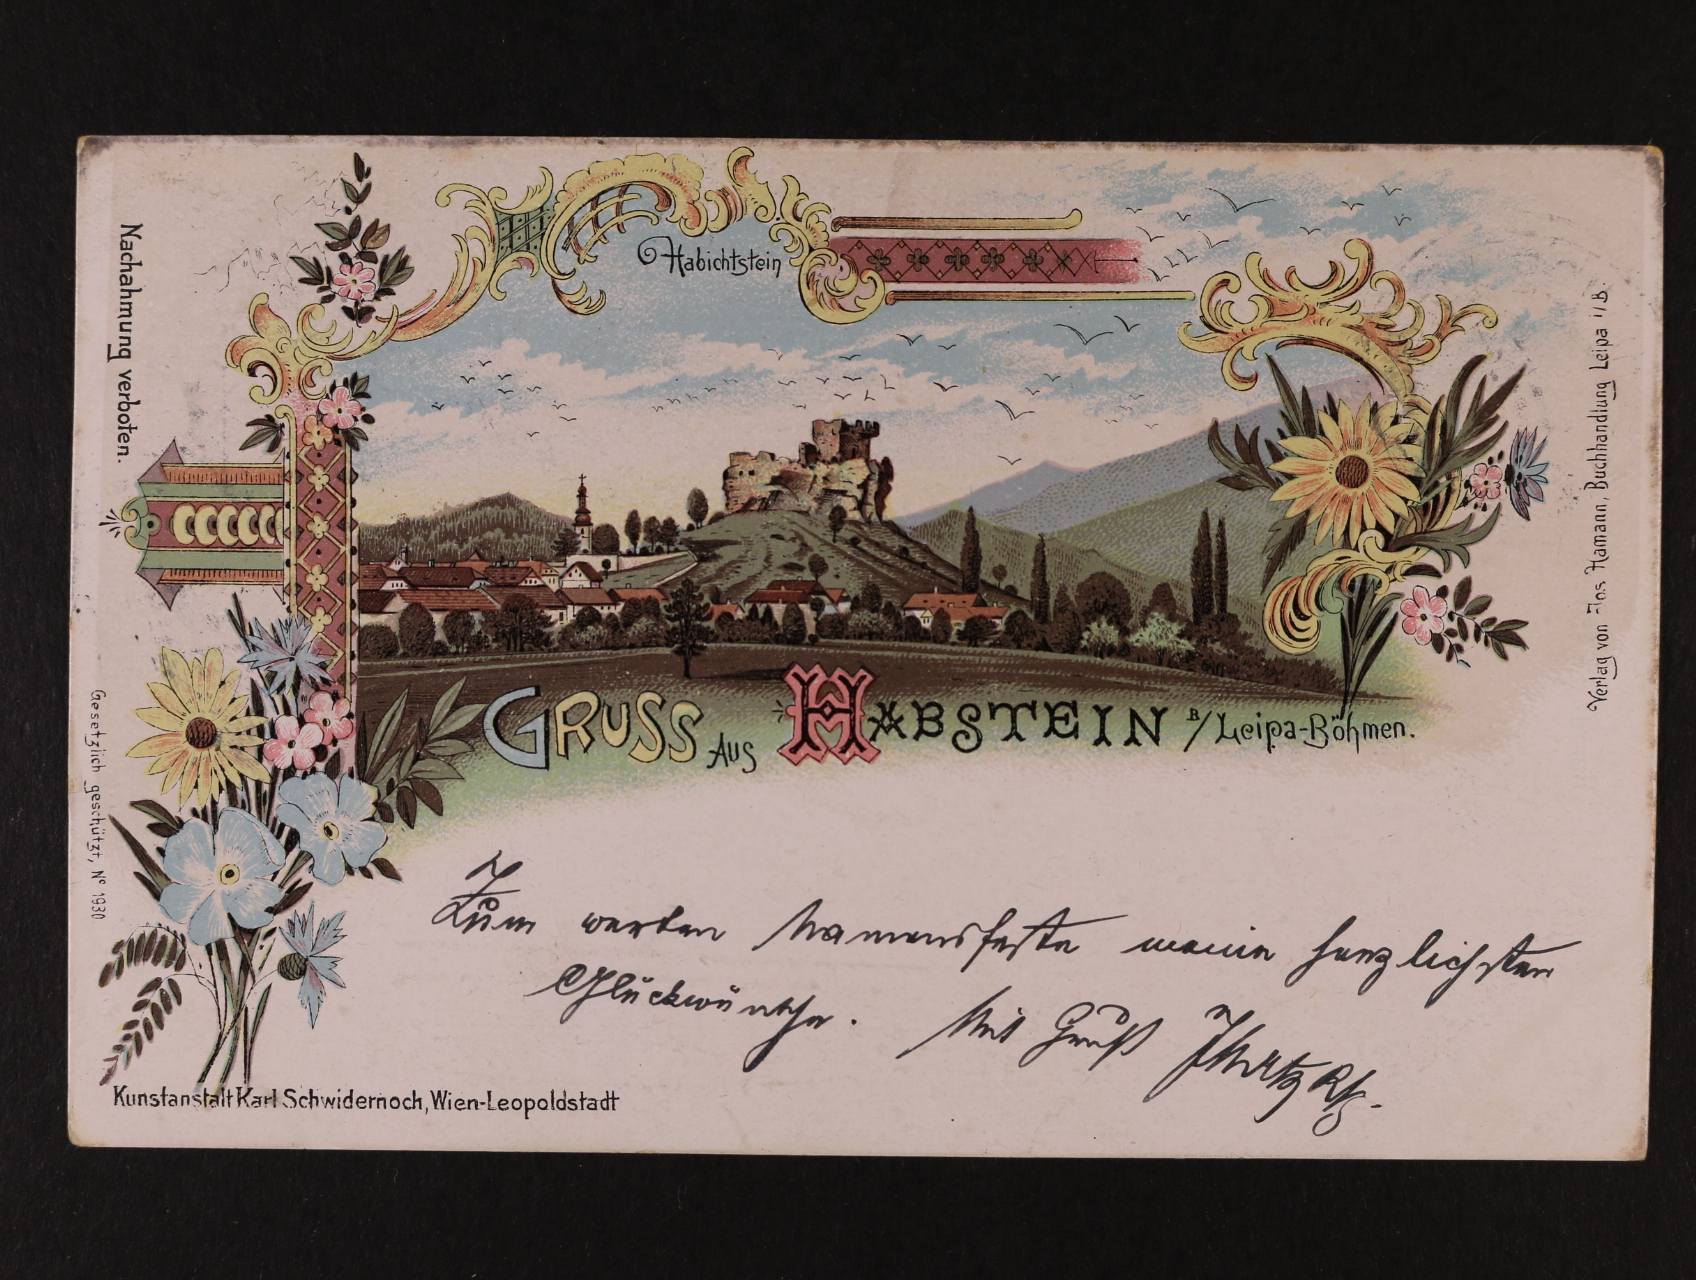 Nachahmung verboten.
Habichtstein
Verlag von Jos Hamann, Buchhandlung Leipa i/B.
Gruss aus Habstein B/Leipa-Böhmen.
Gesetzlich geschützt, No 1930
Zum werten Namensfeste meine herzlichsten
Glückwünsche. Mit Gruß
Kunstanstalt Karl Schwidernoch, Wien-Leopoldstadt